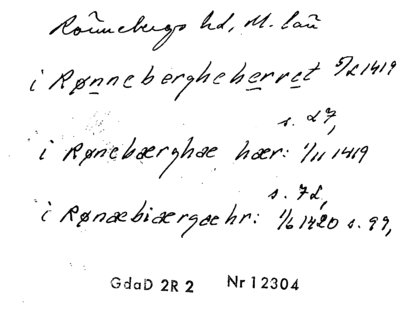 Rönnebergs hd, M. län
i Rønnebergheherret 5/2 1419
s. 27,
i Rønebærghæ hær: 1/11 1419
s. 72,
i Rønæbiærgæ hr: 1/6 1420 s. 99,
GdaD 2R 2 Nr 12304